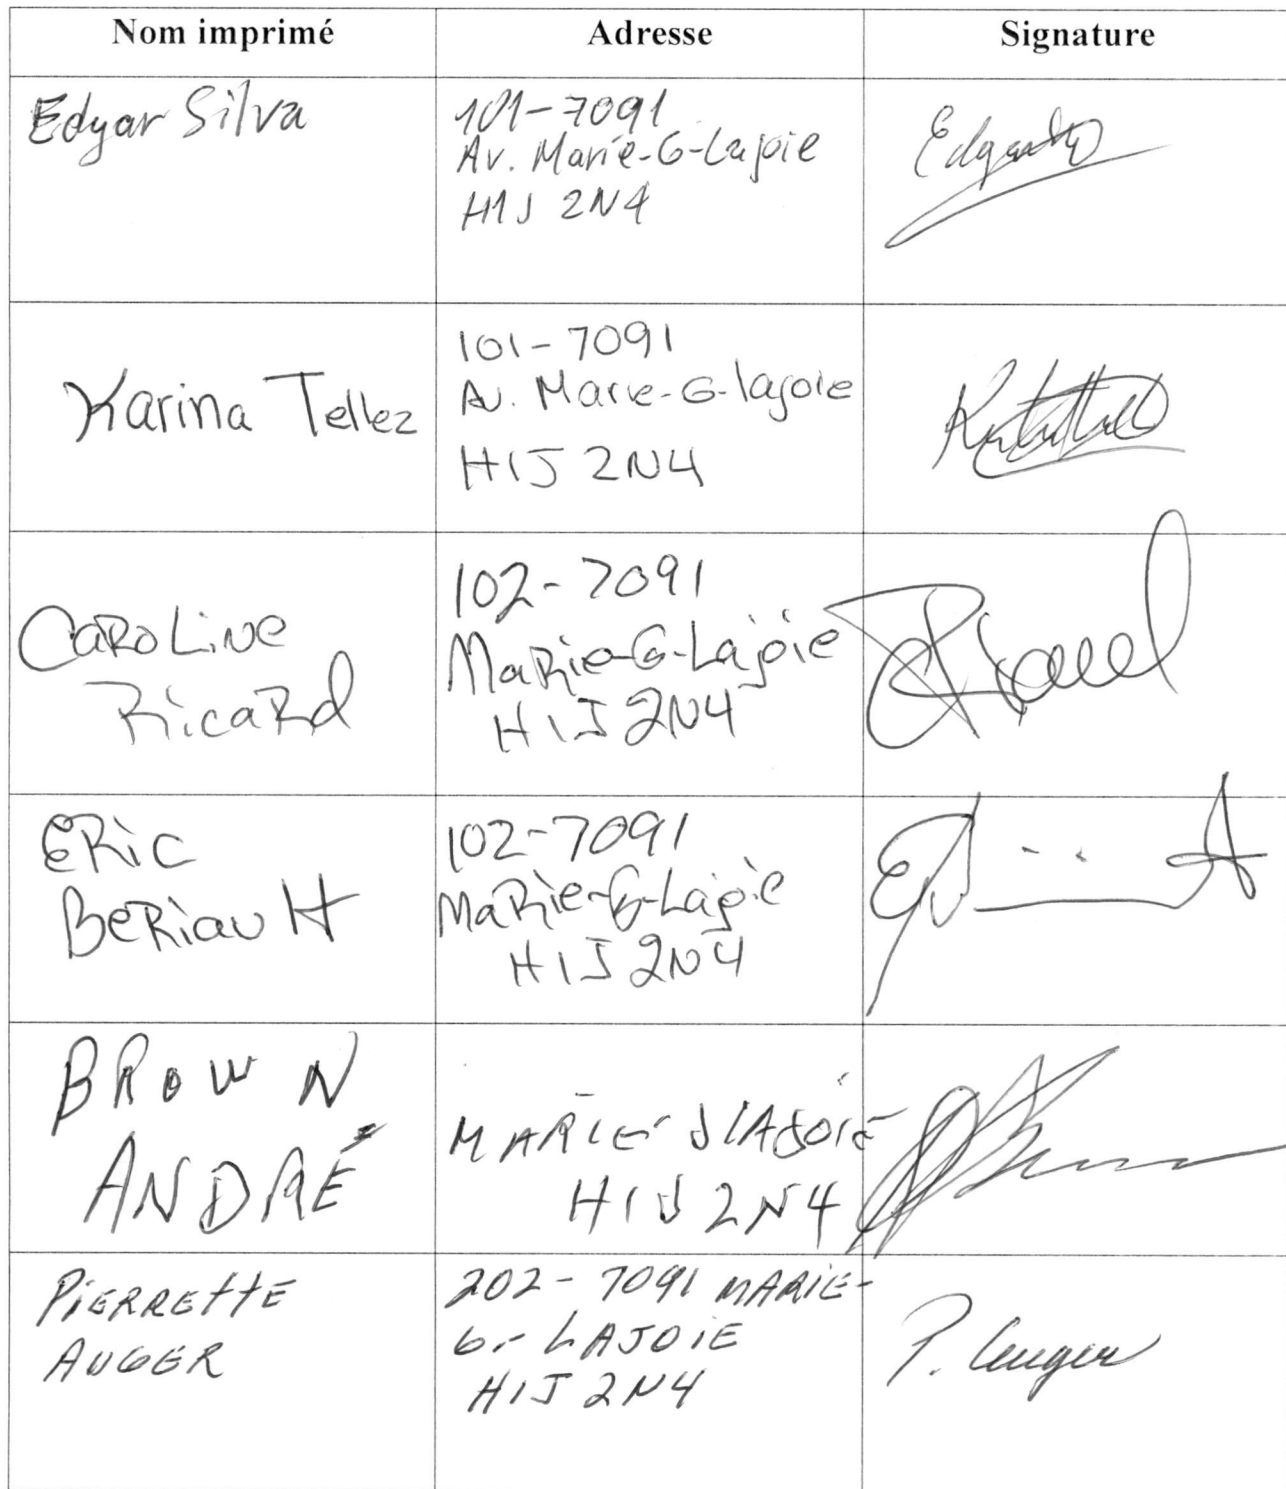 Nom imprimé
Adresse
Signature
Edgar Silva
101-7091
Av. Marie-G-Lajoie
H1J 2N4
Karina Tellez
101-7091
Av. Marie-G-lajoie
H1J 2N4
CaRoLiNe
RicaRd
102-7091
MaRie-G-Lajoie
H1J 2N4
ERic
BeRiault
102-7091
MaRie-G-Lajoie
H1J 2N4
BROWN
ANDRÉ
MARIE J LAJOIE
H1J 2N4
PiERREttE
AUGER
202-7091 MARiE-
G.-LAJOiE
H1J 2N4
P. Auger